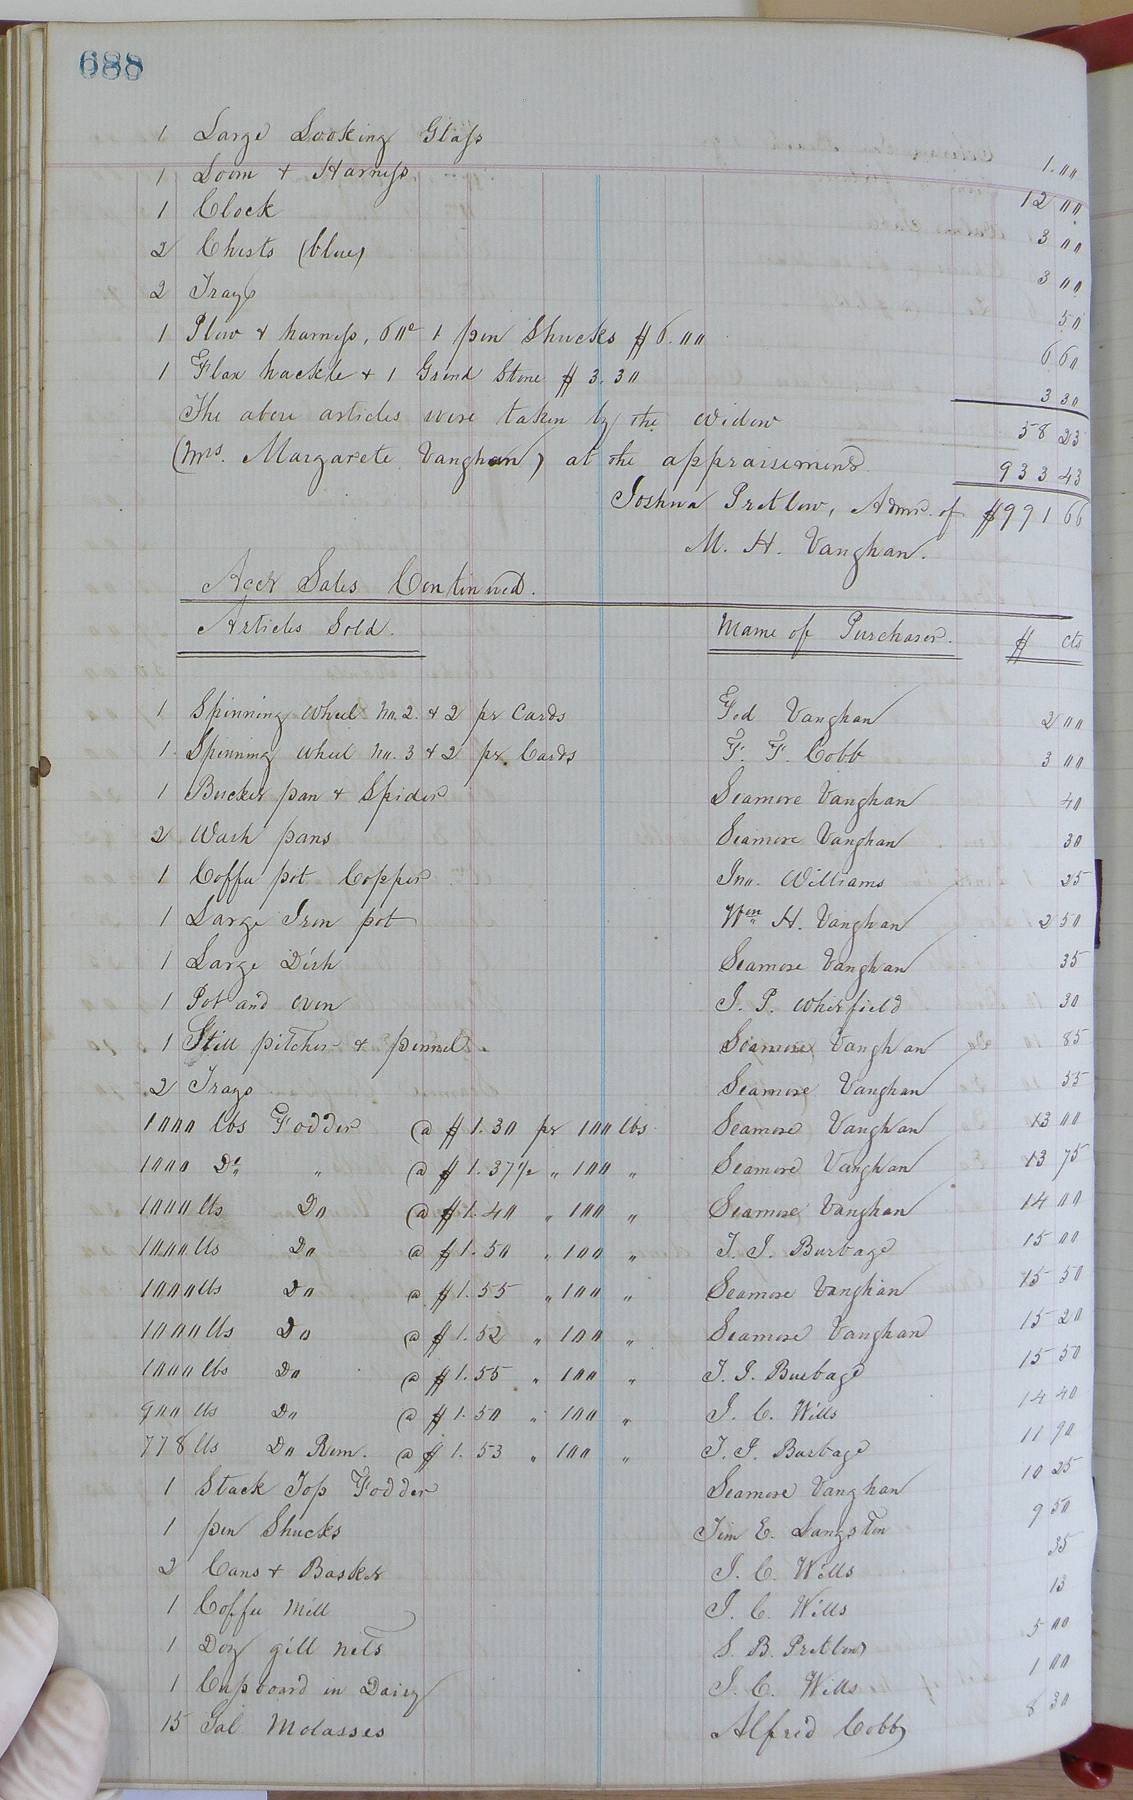 688
1 Large Looking Glass 1.00
1 Loom & Harness 12 00
1 Clock 3 00
2 Chests (blue) 3 00
2 Trays 50
1 Plow & harness, 60c 1 pen Shucks $6.00 6 60
1 Flax hackle & 1 Grind Stone $3.30 3 30
The above articles were taken by the Widow 58 23
(Mrs. Margarete Vaughan) at the appraisement 933 43
Joshua Pretlow, Admr. of $991 66
M. H. Vaughan.
Acct Sales Continued.
Articles Sold. Name of Purchaser. $ cts
1 Spinning Wheel No. 2. & 2 pr Cards Fed Vaughan 2 00
1 Spinning Wheel No. 3 & 2 pr. Cards F. F. Cobb 3 00
1 Bucket pan & Spider Seamore Vaughan 40
2 Wash pans Seamore Vaughan 30
1 Coffee pot Copper Jno. Williams 25
1 Large Iron pot Wm H. Vaughan 2 50
1 Large Dish Seamore Vaughan 35
1 Pot and oven J. P. Whitfield 30
1 Still pitcher & Seamore Vaughan 85
2 Trays Seamore Vaughan 55
1000 lbs Fodder @ $1.30 pr 100 lbs Seamore Vaughan 13 00
1000 Do " @ $1.37½ " 100 " Seamore Vaughan 13 75
1000 lbs Do @ $1.40 " 100 " Seamore Vaughan 14 00
1000 lbs Do @ $1.50 " 100 " T. J. Burbage 15 00
1000 lbs Do @ $1.55 " 100 " Seamore Vaughan 15 50
1000 lbs Do @ $1.52 " 100 " Seamore Vaughan 15 20
1000 lbs Do @ $1.55 " 100 " T. J. Burbage 15 50
900 lbs Do @ $1.50 " 100 " J. C. Wills 14 40
778 lbs Do Rem. @ $1.53 " 100 " T. J. Burbage 11 90
1 Stack Top Fodder Seamore Vaughan 10 25
1 pen Shucks Jim E. Langston 9 50
2 Cans & Basket J. C. Wills 35
1 Coffee Mill J. C. Wills 13
1 Doz gill nets S. B. Pretlow 5 00
1 Cupboard in Dairy J. C. Wills 1 00
15 Gal Molasses Alfred Cobb 8 30